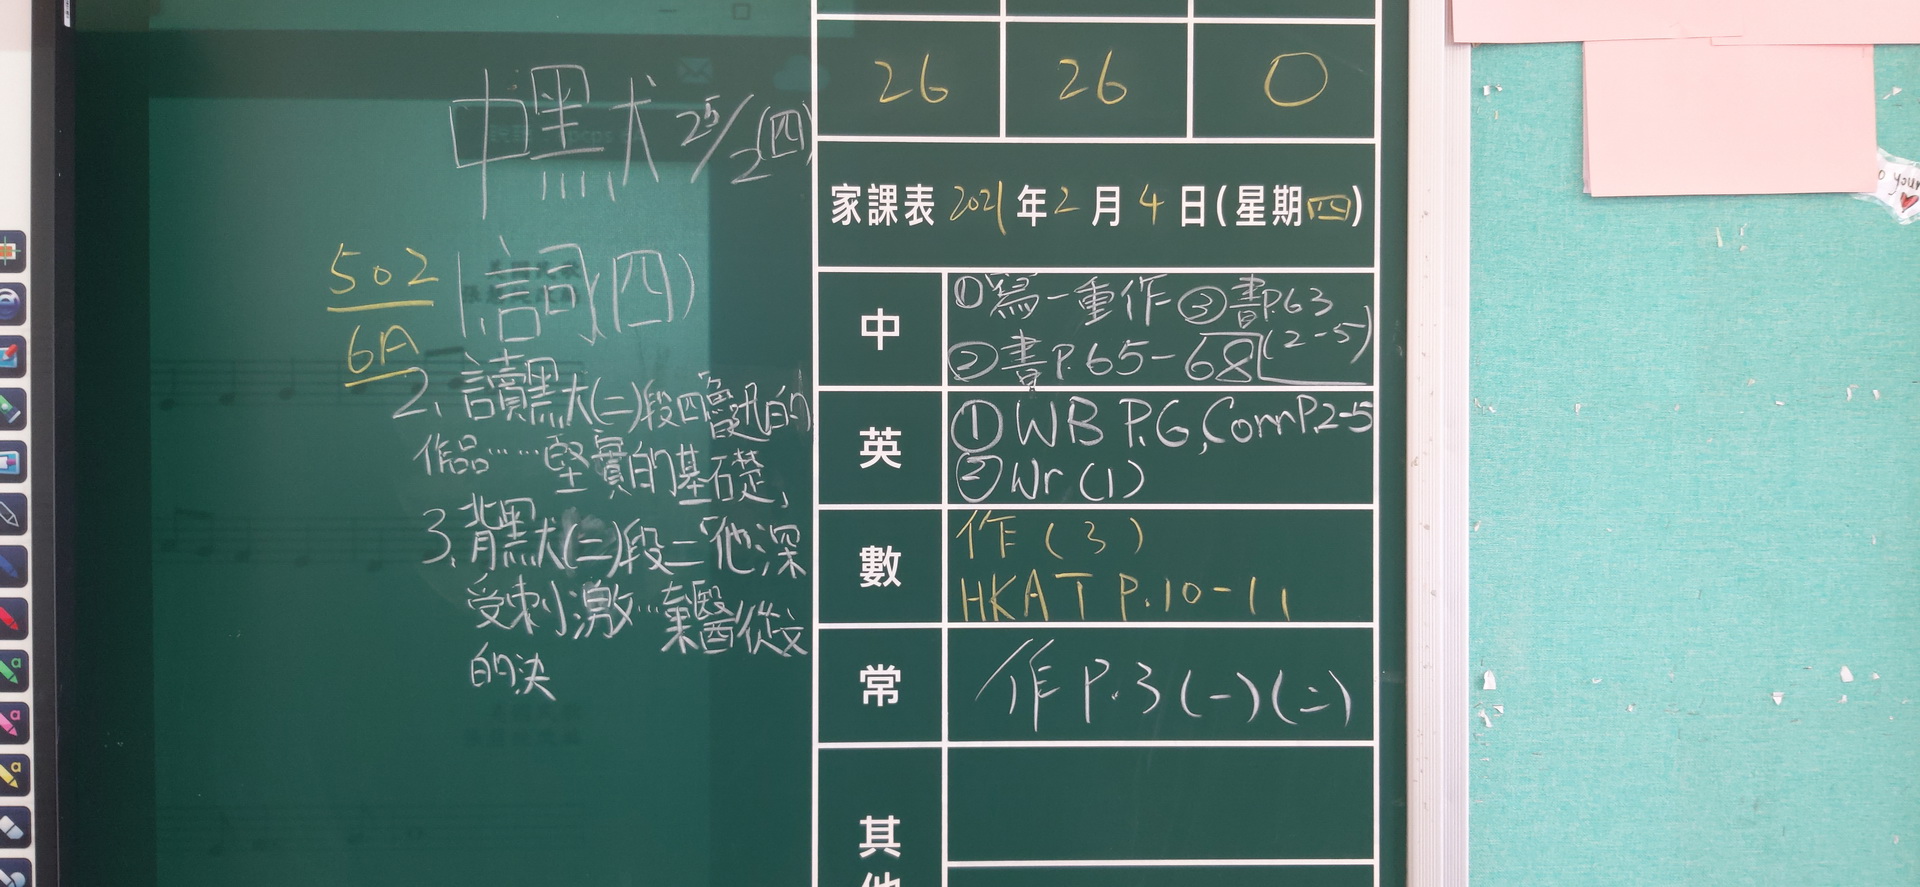 中默 25/2(四)
502
6A
1.詞(四)
2.讀默(二)段四"魯迅的
作品……堅實的基石楚,
3.背默(二)段二"他深
受刺激…棄醫從文
的決
26 26 0
家課表 2021年2月4日(星期四)
中 ①寫一重作 ③書P.63
②書P.65-68 (2-5)
英 ①WB P.6, Comp P.2-5
②Wr (1)
數 作(3)
HKAT P.10-11
常 作P.3(一)(二)
其他